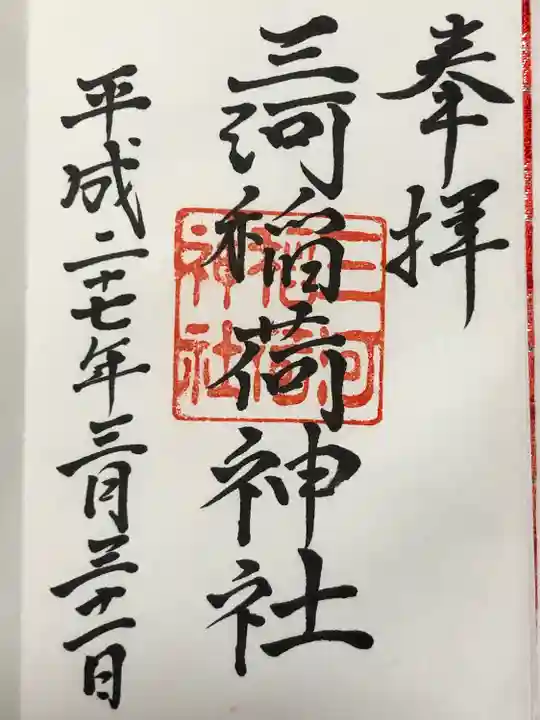 奉拝
三河稲荷神社
平成二十七年三月三十一日
三河
稲荷
神社